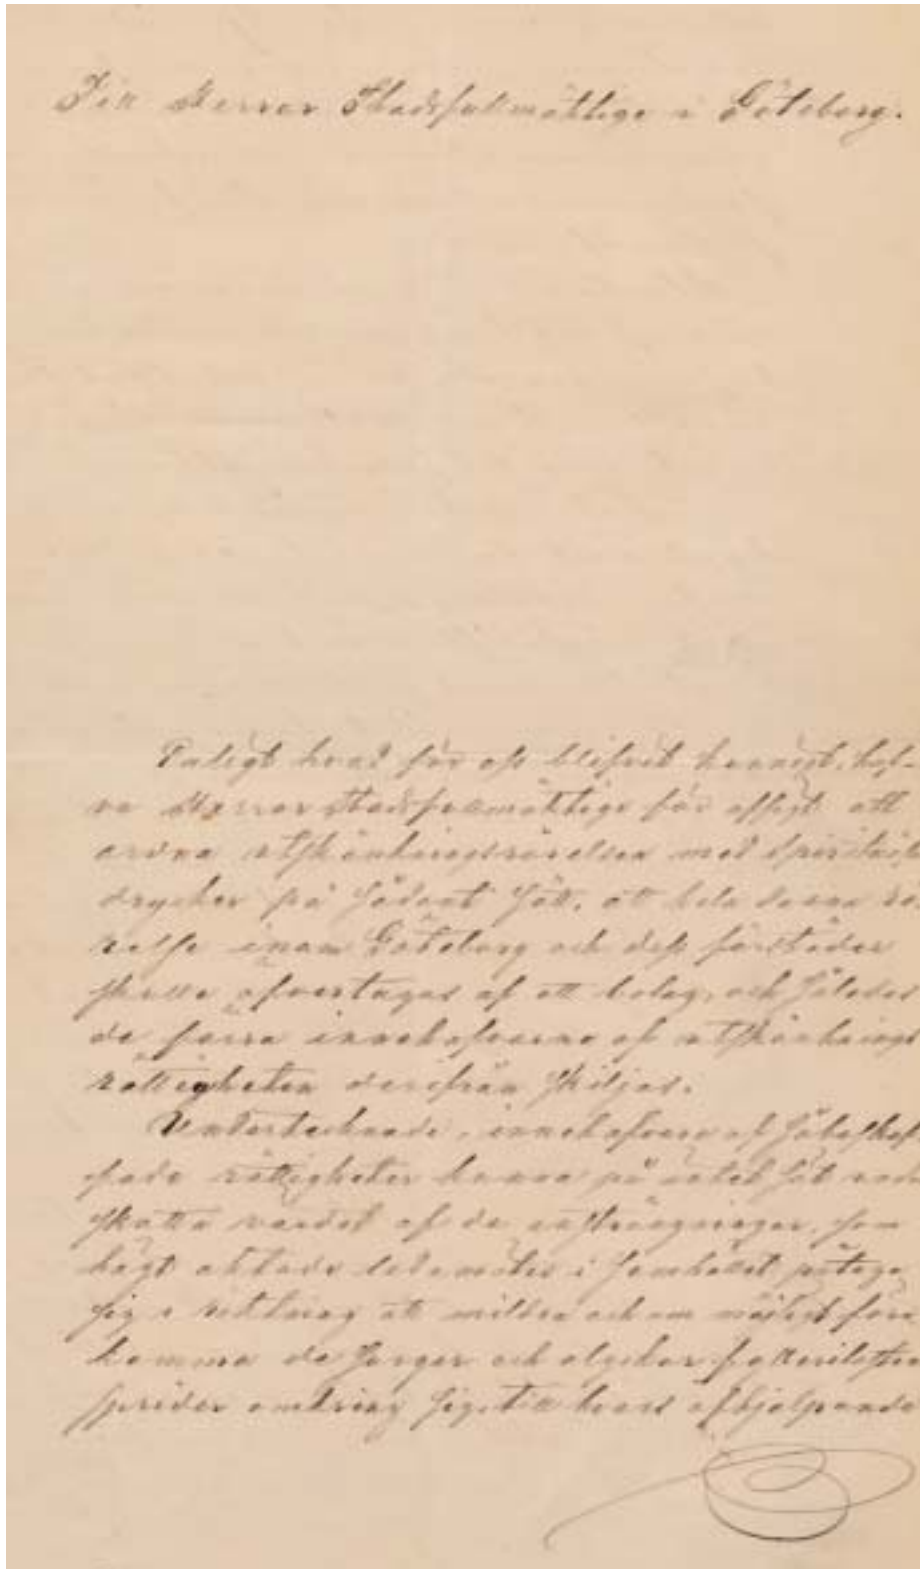 Till Herrar Stadsfullmäktige i Göteborg.
Enligt hvad för oss blifvit kunnigt, haf-
va Herrar Stadsfullmäktige för afsigt att
ordna utskänkningsrörelsen med spirituösa
drycker på sådant sätt, att hela denna rö
relse inom Göteborg och dess förstäder
skulle öfvertagas af ett bolag, och således
de förra innehafvarne af utskänknings
rättigheten derifrån skiljas.
Undertecknade, innehafvare af sålunda
rättigheter kunna på intet sätt under
skatta värdet af de ansträngningar, som
högt aktade ledamöter i samhället påtaga
sig i riktning att mildra och om möjligt före
komma de sorger och olyckor fylleriet
sprider omkring sig, till hvars afhjelpande